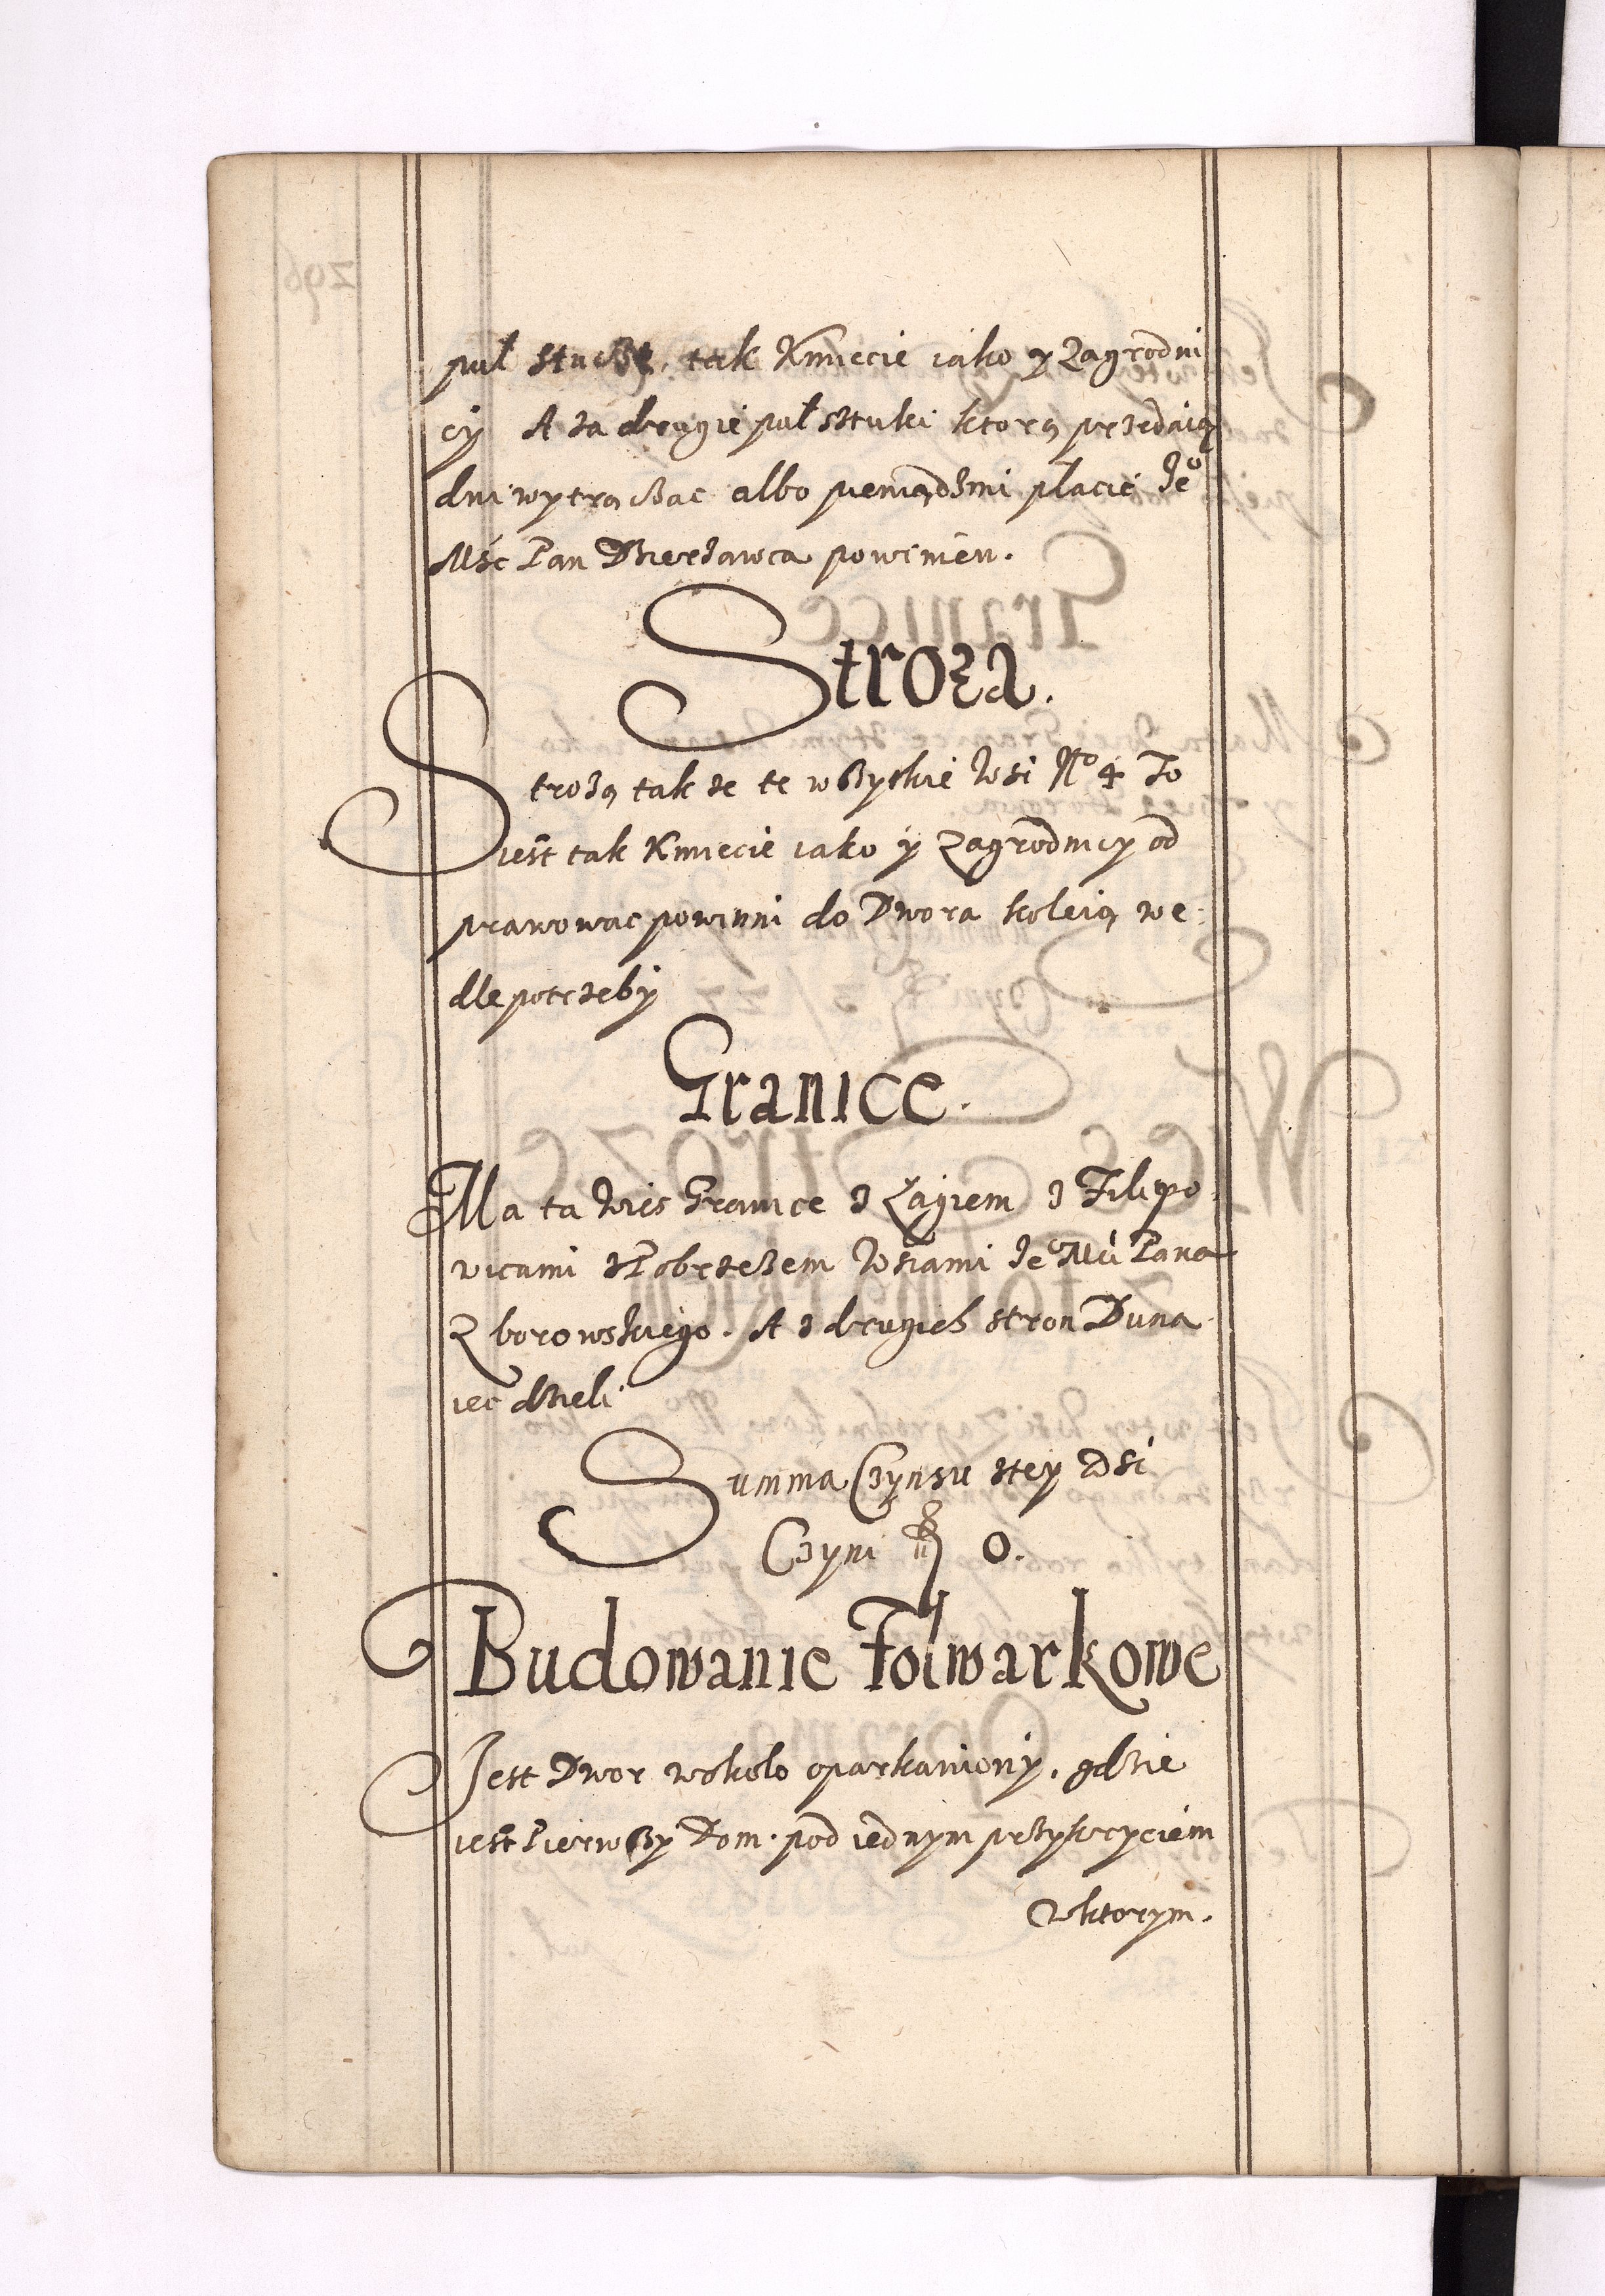 puł sztuki, tak Kmiecie iako y Zagrodni
cy A za drugie puł sztuki ktorą przedaią
dni wytrączac albo pieniądzmi płacic Je°
Mśc Pan Dzierzawca powinien.
Stroza.
Strozą takze te wszytkie Wsi N° 4 To
iest tak Kmiecie iako y Zagrodnicy od
prawowac powinni do Dwora koleią we
dle potrzeby
Granice.
Ma ta Wies Granice z Zagiem z Filipo
wicami z Pobrzezem Wsiami Je° Mći Pana
Zborowskiego. A z drugich stron Duna
iec dzieli
Summa Czynszu z tey Wsi
Czyni 0.
Budowanie Folwarkowe
Jest Dwor wokolo oparkaniony. gdzie
iest Pierwszy Dom. pod iednym przykryciem
W ktorym.